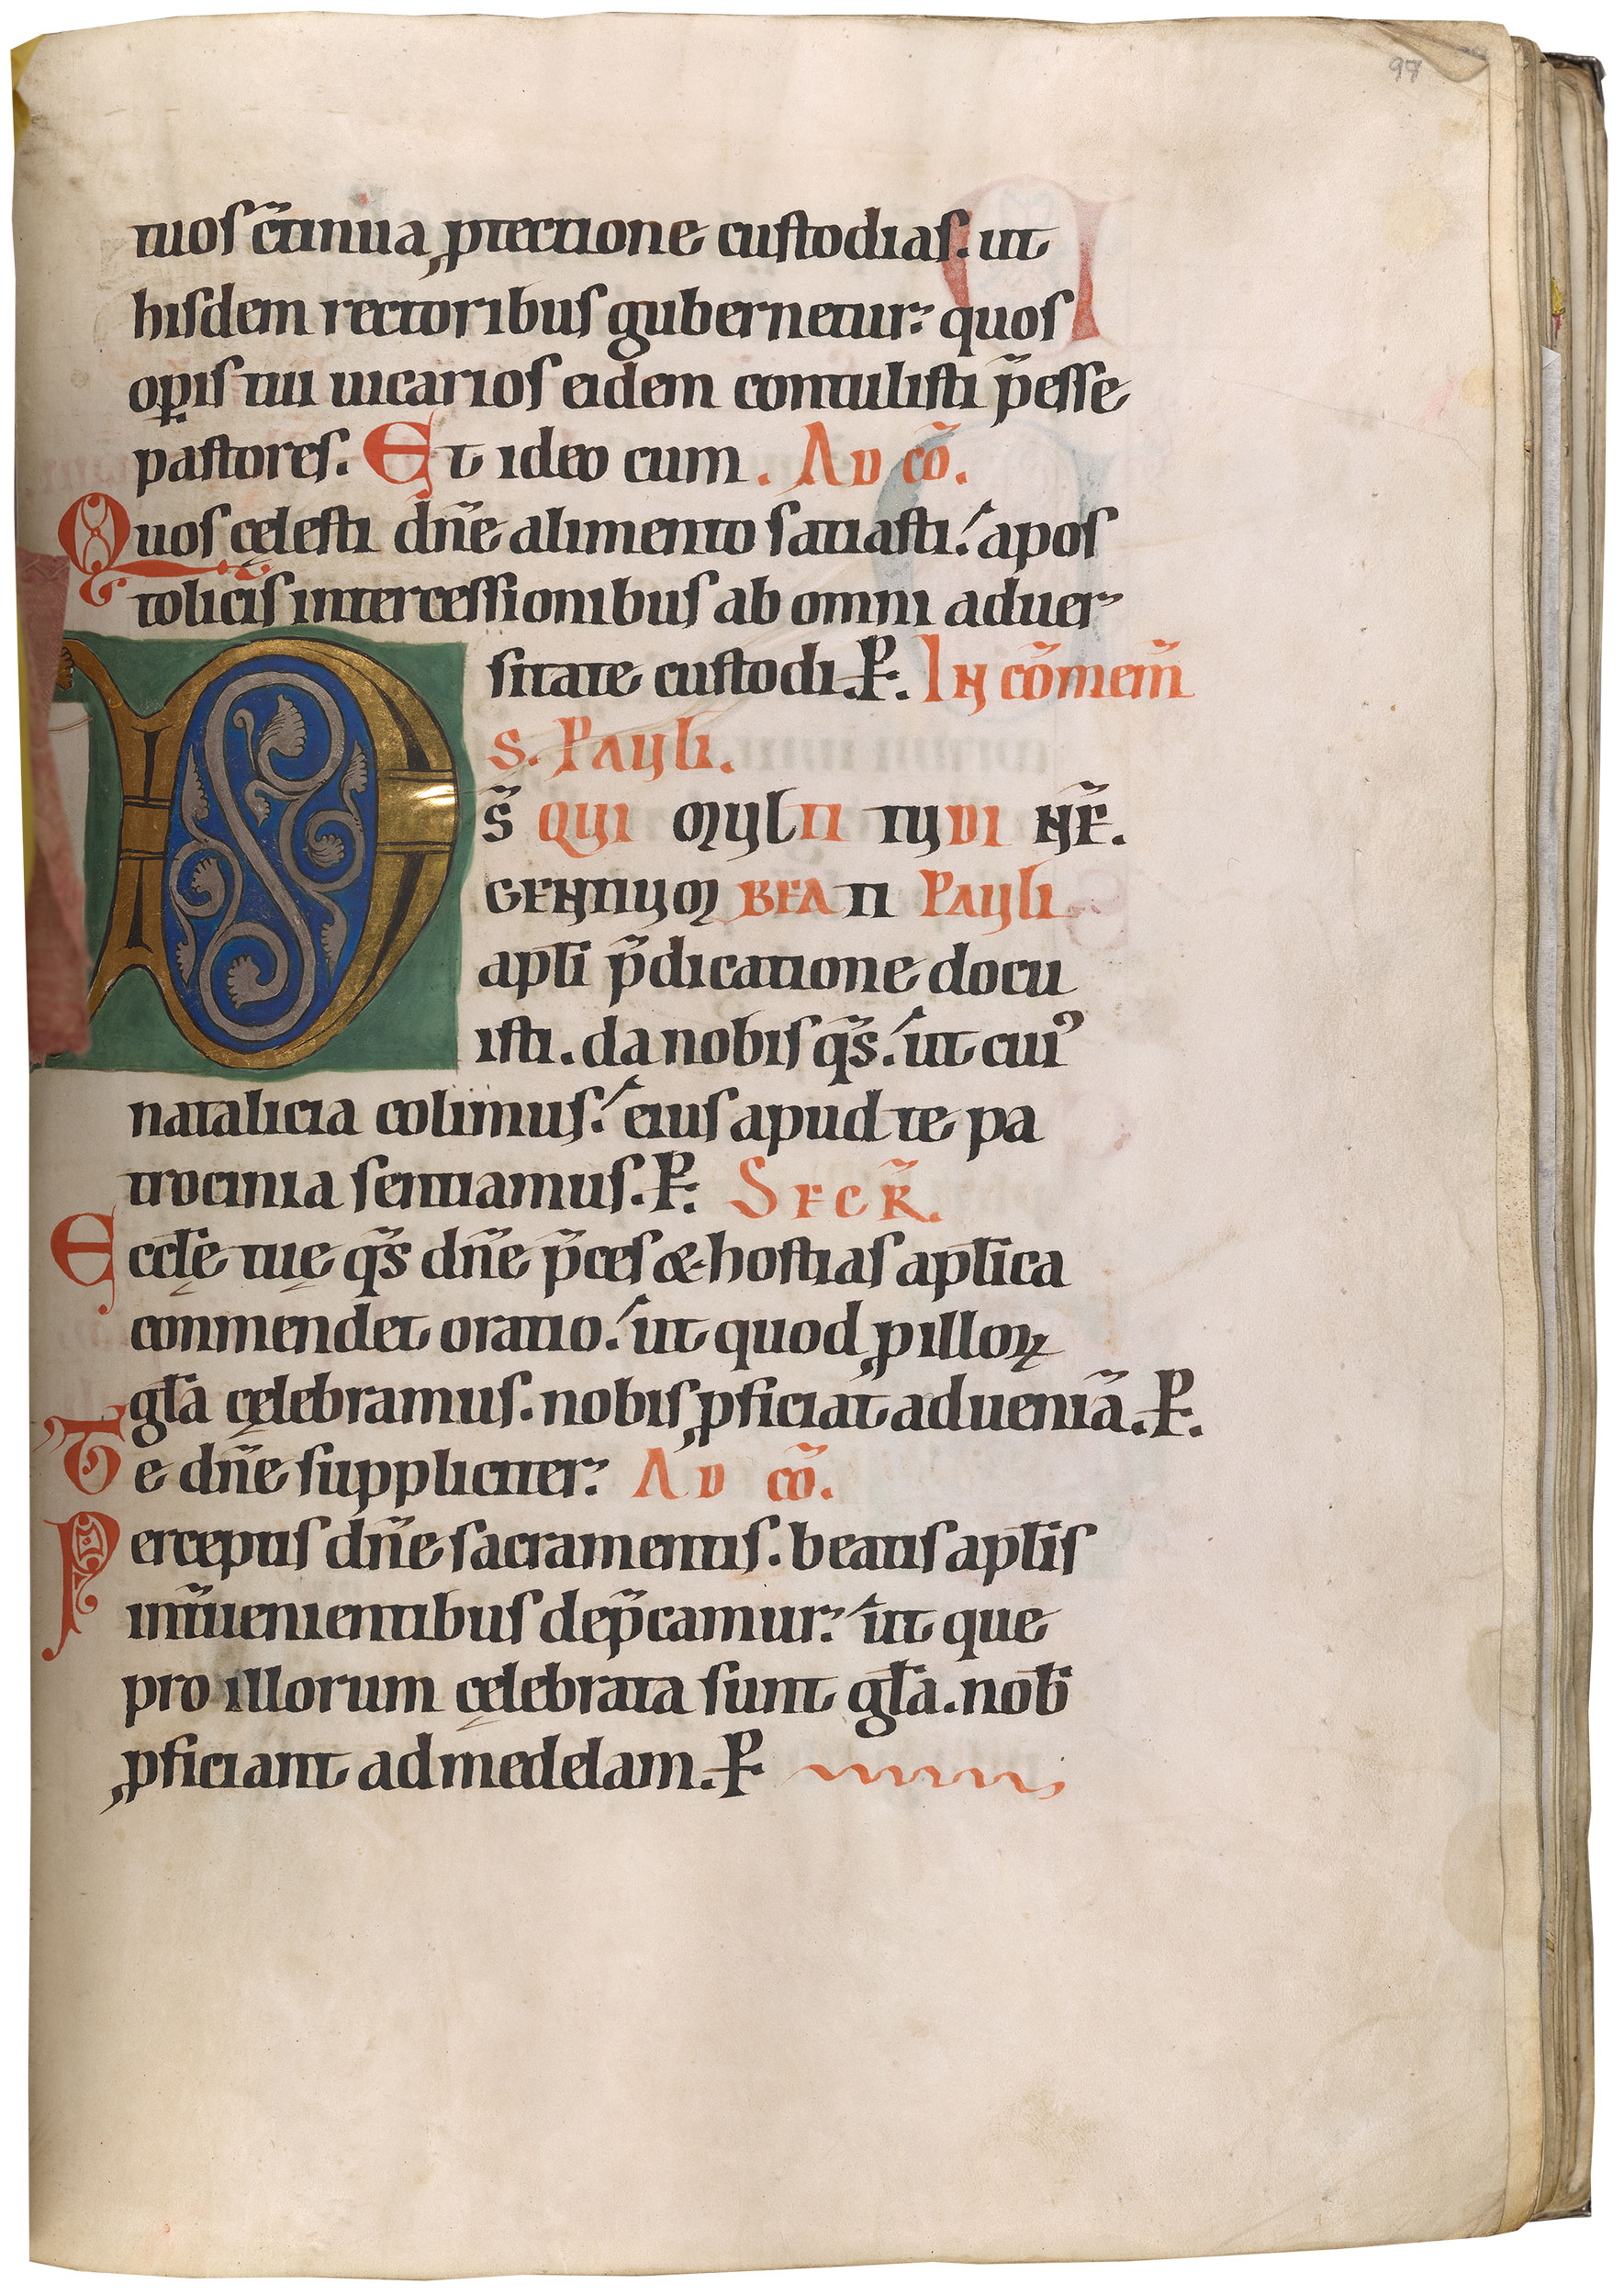 97
tuos c̃tinua ꝓtectione custodias. ut
hisdem rectoribus gubernetur: quos
oꝑis tui uicarios eidem contulisti p̃esse
pastores. Et ideo cum. AD cõ.
Quos cęlesti dñe alimento satiasti: apos
tolicis intercessionibus ab omni aduer
sitate custodi. P. IN cõmem̃
S. PAULI.
DS̃ QUI MULTITUDINẼ.
GENTIUM BEATI PAULI
apłi p̃dicatione docu
isti. da nobis q̃s. ut cuiꝰ
natalicia colimus: eius apud te pa
trocinia sentiamus. P. SECR̃.
Eccłę tuę q̃s dñe p̃ces & hostias apłica
conmendet oratio: ut quod ꝓ illoꝝ
gła cęlebramus. nobis ꝓficiat ad ueniã. P.
Te dñe suppliciter: AD cõ.
Perceptis dñe sacramentis. beatis apłis
int̃uenientibus dep̃camur: ut que
pro illorum cęlebrata sunt gła. nob̄
ꝓficiant ad medelam. P.